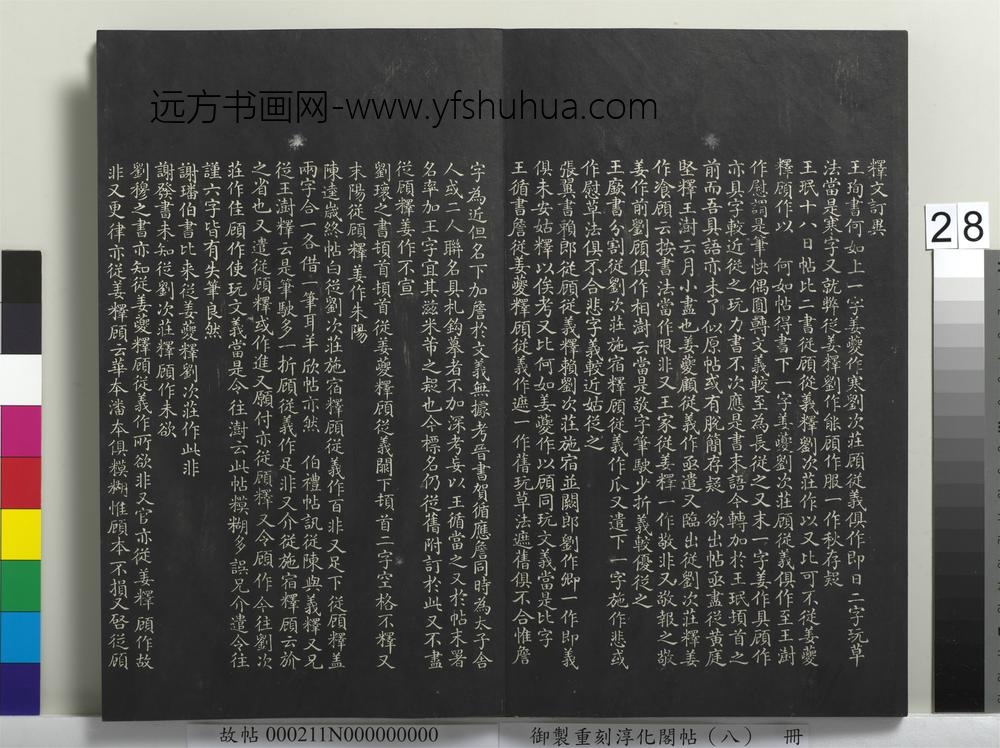 远方书画网-www.yfshuhua.com
釋文訂異
王珣書何如上一字姜夔作寒劉次莊顧從義俱作即日二字玩草
法當是寒字又就弊從姜釋劉作能顧作服一作秋存疑
王珉十八日帖比二書從顧從義釋劉次莊作以又比可不從姜夔
釋顧作以 何如帖得書下一字姜夔劉次莊顧從義俱作至王澍
作慰謂是筆快偶圓轉文義較至為長從之又末一字姜作具顧作
亦具字較近從之玩力書不次應是書末語今轉加於王珉頓首之
前而吾具語亦未了似原帖或有脫簡存疑 欲出帖亟盡從黃庭
堅釋王澍云月小盡也姜夔顧從義作亟遣又臨出從劉次莊釋姜
作飡顧云按書法當作限非又王家從姜釋一作敬非又敬報之敬
姜作前劉顧俱作相澍云當是敬字筆駛少折義較優從之
王廞書分割從劉次莊施宿釋顧從義作瓜又遣下一字施作悲或
作慰草法俱不合悲字義較近姑從之
張翼書賴郎從顧從義釋賴劉次莊施宿並闕郎劉作卿一作即義
俱未安姑釋以俟考又比何如姜夔作以顧同玩文義當是比字
王循書詹從姜夔釋顧從義作遮一作舊玩草法遮舊俱不合惟詹
字為近但名下加詹於文義無據考晉書賀循應詹同時為太子舍
人或二人聯名具札鈎摹者不加深考妄以王循當之又於帖末署
名率加王字宜其滋米芾之疑也今標名仍從舊附訂於此又不盡
從顧釋姜作不宣
劉瓌之書頓首頓首從姜夔釋顧從義闕下頓首二字空格不釋又
末陽從顧釋姜作朱陽
陳逵歲終帖白從劉次莊施宿釋顧從義作百非又足下從顧釋蓋
兩字合一各借一筆耳羊欣帖亦然 伯禮帖訊從陳與義釋又兄
從王澍釋云是筆駛多一折顧從義作足非又介從施宿釋顧云於
之省也又遣從顧釋或作進又願付亦從顧釋又令顧作今往劉次
莊作佳顧作使玩文義當是令往澍云此帖模糊多誤兄介遣令往
謹六字皆有失筆良然
謝璠伯書比來從姜夔釋劉次莊作此非
謝發書未知從劉次莊釋顧作未欲
劉穆之書亦知從姜夔釋顧從義作所欲非又官亦從姜釋顧作故
非又更律亦從姜釋顧云華本潘本俱模糊惟顧本不損又啓從顧
28
故帖 000211N000000000
御製重刻淳化閣帖（八） 冊